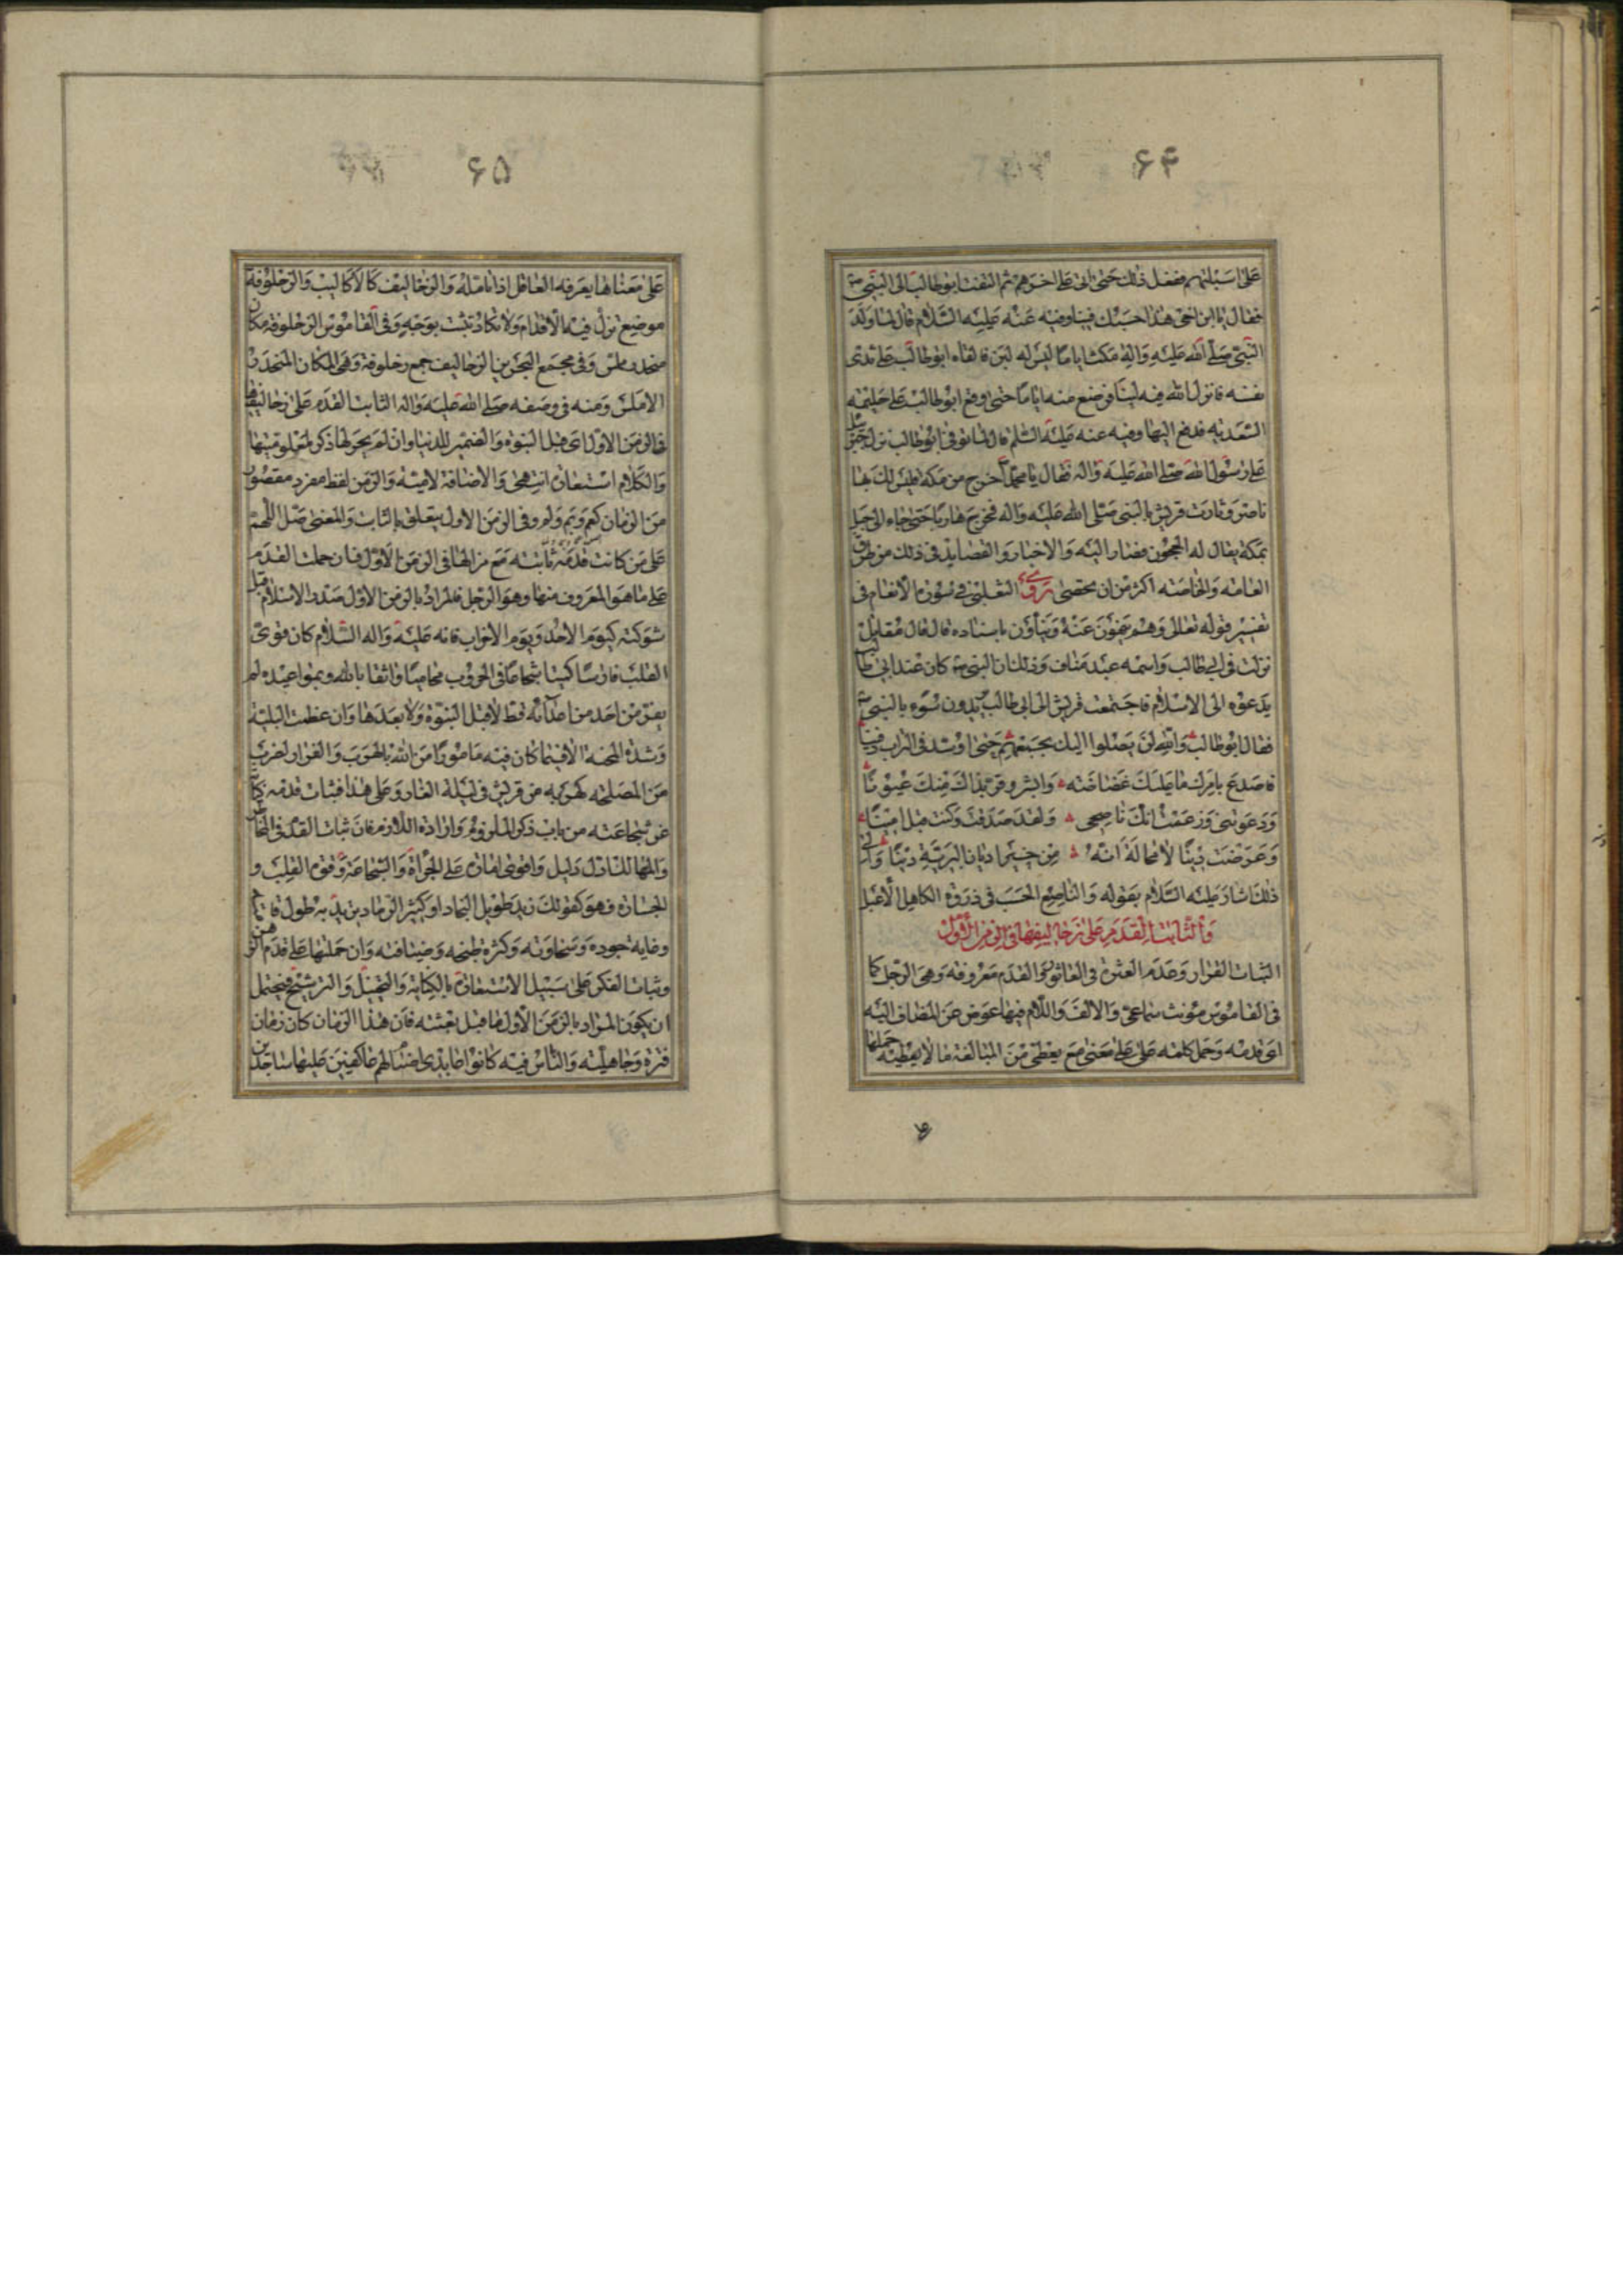 ۶۴
على اسبلتهم ففعل ذلك حتى اتى على اخرهم ثم التفت ابو طالب الى النبي ص
فقال يا ابن اخي هذا حسبك فينا وفيه عنه عليه السلام قال لما ولد
النبي صلى الله عليه واله مكث اياما ليس له لبن فالقاه ابو طالب على ثدي
نفسه فانزل الله فيه لبنا فرضع منه اياما حتى وقع ابو طالب على حليمة
السعدية فدفعه اليها وفيه عنه عليه السلم قال لما توفي ابو طالب نزل جبرئيل
على رسول الله صلى الله عليه واله فقال يا محمد اخرج من مكة فليس لك بها
ناصر وثارت قريش بالنبي صلى الله عليه واله فخرج هاربا حتى جاء الى جبل
بمكة يقال له الحجون فصار اليه والاخبار والقصايد في ذلك من طرق
العامة والخاصة اكثر من ان يحصى روى الثعلبي في سورة الانعام في
تفسير قوله تعالى وهم ينهون عنه وينأون باسناده قال قال مقاتل
نزلت في ابي طالب واسمه عبد مناف وذلك ان النبي ص كان عند ابي طالب
يدعوه الى الاسلام فاجتمعت قريش الى ابي طالب يريدون سوء بالنبي ص
فقال ابو طالب والله لن يصلوا اليك بجمعهم حتى اوسد في التراب دفينا
فاصدع بامرك ما عليك غضاضة وابشر وقر بذاك منك عيونا
ودعوتني وزعمت انك ناصحي ولقد صدقت وكنت قبل امينا
وعرضت دينا لا محالة انه من خير اديان البرية دينا والى
ذلك اشار عليه السلام بقوله والناصع الحسب في ذروة الكاهل الاعبل
والثابت القدم على زحاليفها في الزمن الاول
الثبات القرار وعدم العثرة في القاموس والقدم معروفة وهي الرجل كما
في القاموس مؤنث سماعي والالف واللام فيها عوض عن المضاف اليه
اي قدمه وحمل كلمة على على معنى مع يعطي من المبالغة ما لا يعطيه حملها
۶۵
على معناها يعرفه العاقل اذا تامله والزحاليف كالاكاليب والزحلوفة
موضع تزل فيه الاقدام ولا تكاد تثبت بوجه وفي القاموس الزحلوفة مكان
منحدر ملس وفي مجمع البحرين الزحاليف جمع زحلوفة وهي المكان المنحدر
الاملس ومنه في وصفه صلى الله عليه واله الثابت القدم على زحاليفها
في الزمن الاول اي قبل النبوة والضمير للدنيا وان لم يجر لها ذكر لمعلوميتها
والكلام استعارة انتهى والاضافة لامية والزمن لفظ مفرد مقصور
من الزمان كعم ويم ولم وفي الزمن الاول يتعلق بالثابت والمعنى صل اللهم
على من كانت قدمه ثابتة مع مزالها في الزمن الاول فان حملت القدم
على ما هو المعروف منها وهو الرجل فالمراد بالزمن الاول صدر الاسلام قبل
شوكته كيوم الاحد ويوم الاحزاب فانه عليه واله السلام كان قوي
القلب فارسا كيسا شجاعا في الحروب محاميا واثقا بالله وبمواعيده لم
يفر من احد من اعدائه قط لا قبل النبوة ولا بعدها وان عظمت البلية
وشدة المحنة الا فيما كان فيه مامورا من الله بالهرب والفرار لضرب
من المصلحة كهربه من قريش في ليلة الغار وعلى هذا فثبات قدمه كناية
عن شجاعته من باب ذكر الملزوم وارادة اللازم فان ثبات القدم في المخاطر
والمهالك لنا دليل واقوى امارة على الجرأة والشجاعة وقوة القلب و
الجسارة فهو كقولك زيد طويل النجاد او كثير الرماد يريد به طول قامته
وغاية جوده وسخاوته وكثرة طبخه وضيافته وان حملتها على قدم الفكر
وثبات الفكر على سبيل الاستعارة بالكناية والتخييل والترشيح فيحتمل
ان يكون المراد بالزمن الاول ما قبل بعثته فان هذا الزمان كان زمان
فترة وجاهلية والناس فيه كانوا عابدي اصنام لهم عاكفين عليها ساجدين